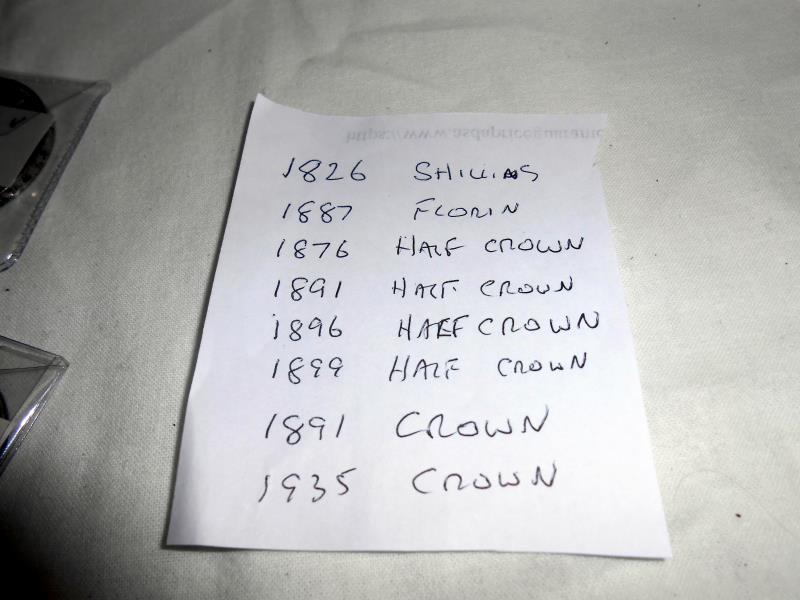 1826 SHILLING
1887 FLORIN
1876 HALF CROWN
1891 HALF CROWN
1896 HALF CROWN
1899 HALF CROWN
1891 CROWN
1935 CROWN